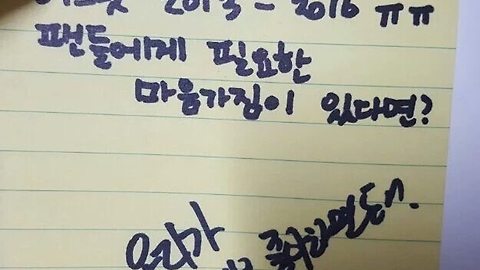 2013 - 2016 ㅠㅠ
팬들에게 필요한
마음가짐이 있다면?
우리가